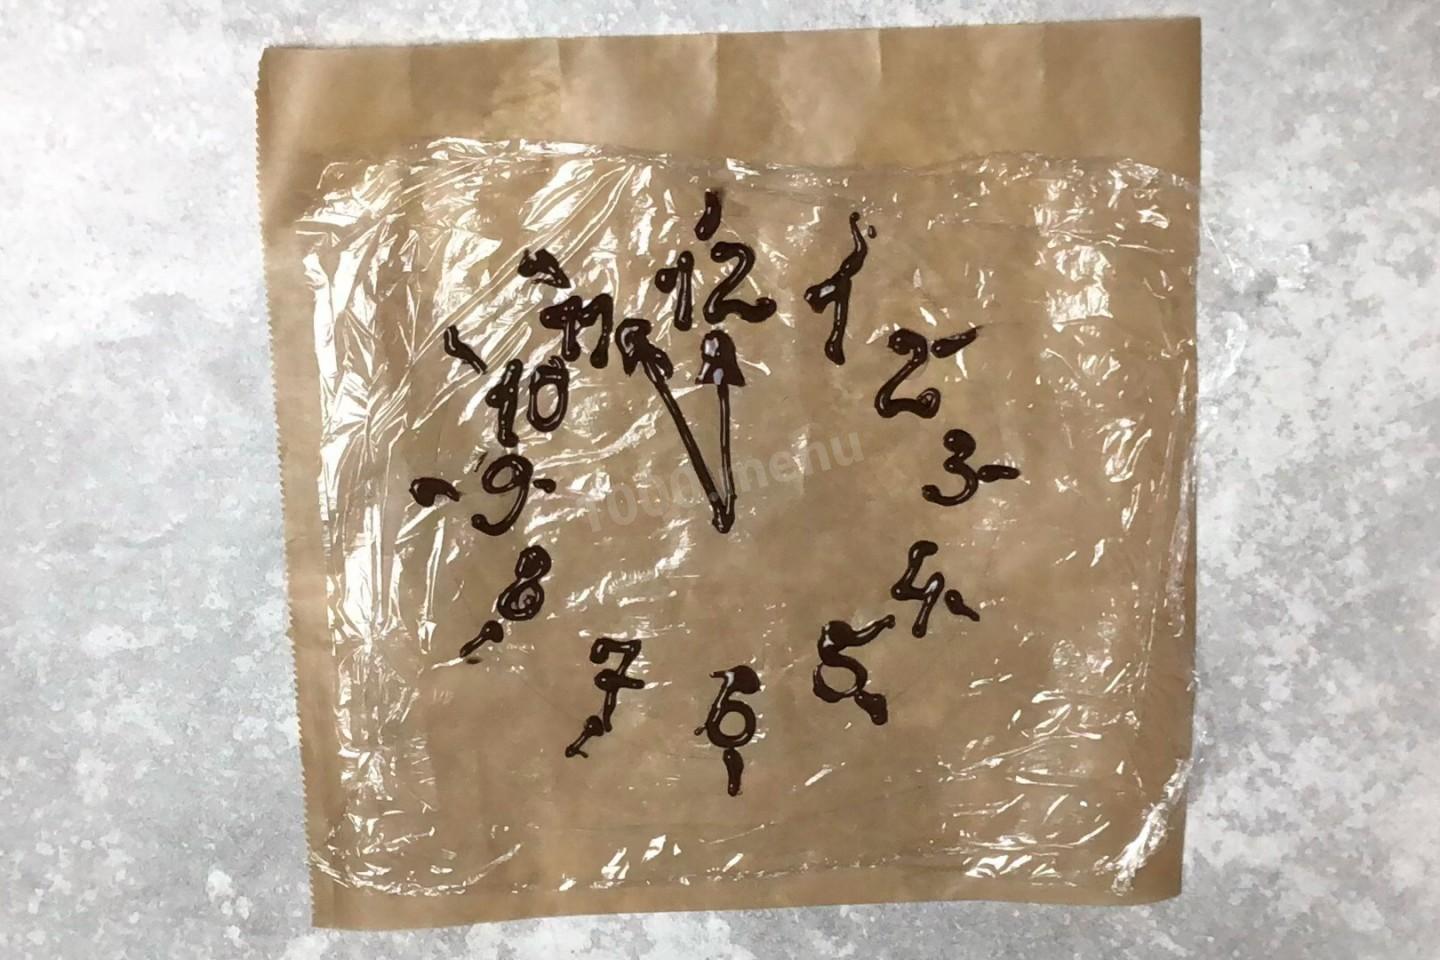 12
1
2
3
4
5
6
7
8
9
10
11
1000.menu